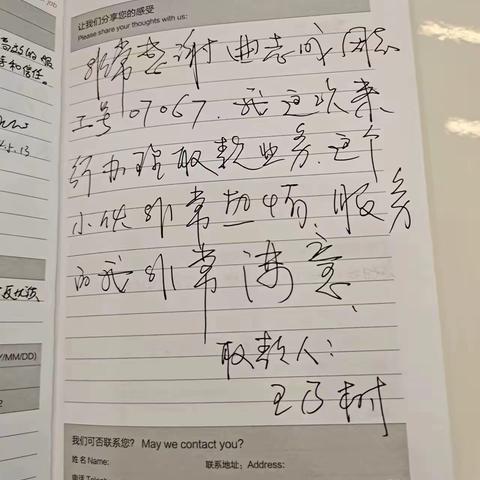 job
让我们分享您的感受
Please share your thoughts with us:
非常感谢曲志成同志
工号07067.我这次来
行办理取款业务.这个
小伙非常热情、服务
的我非常满意、
取款人：
王乃树
和信任。
Y/MM/DD)
我们可否联系您? May we contact you?
姓名Name:
联系地址：Address:
电话Teleph